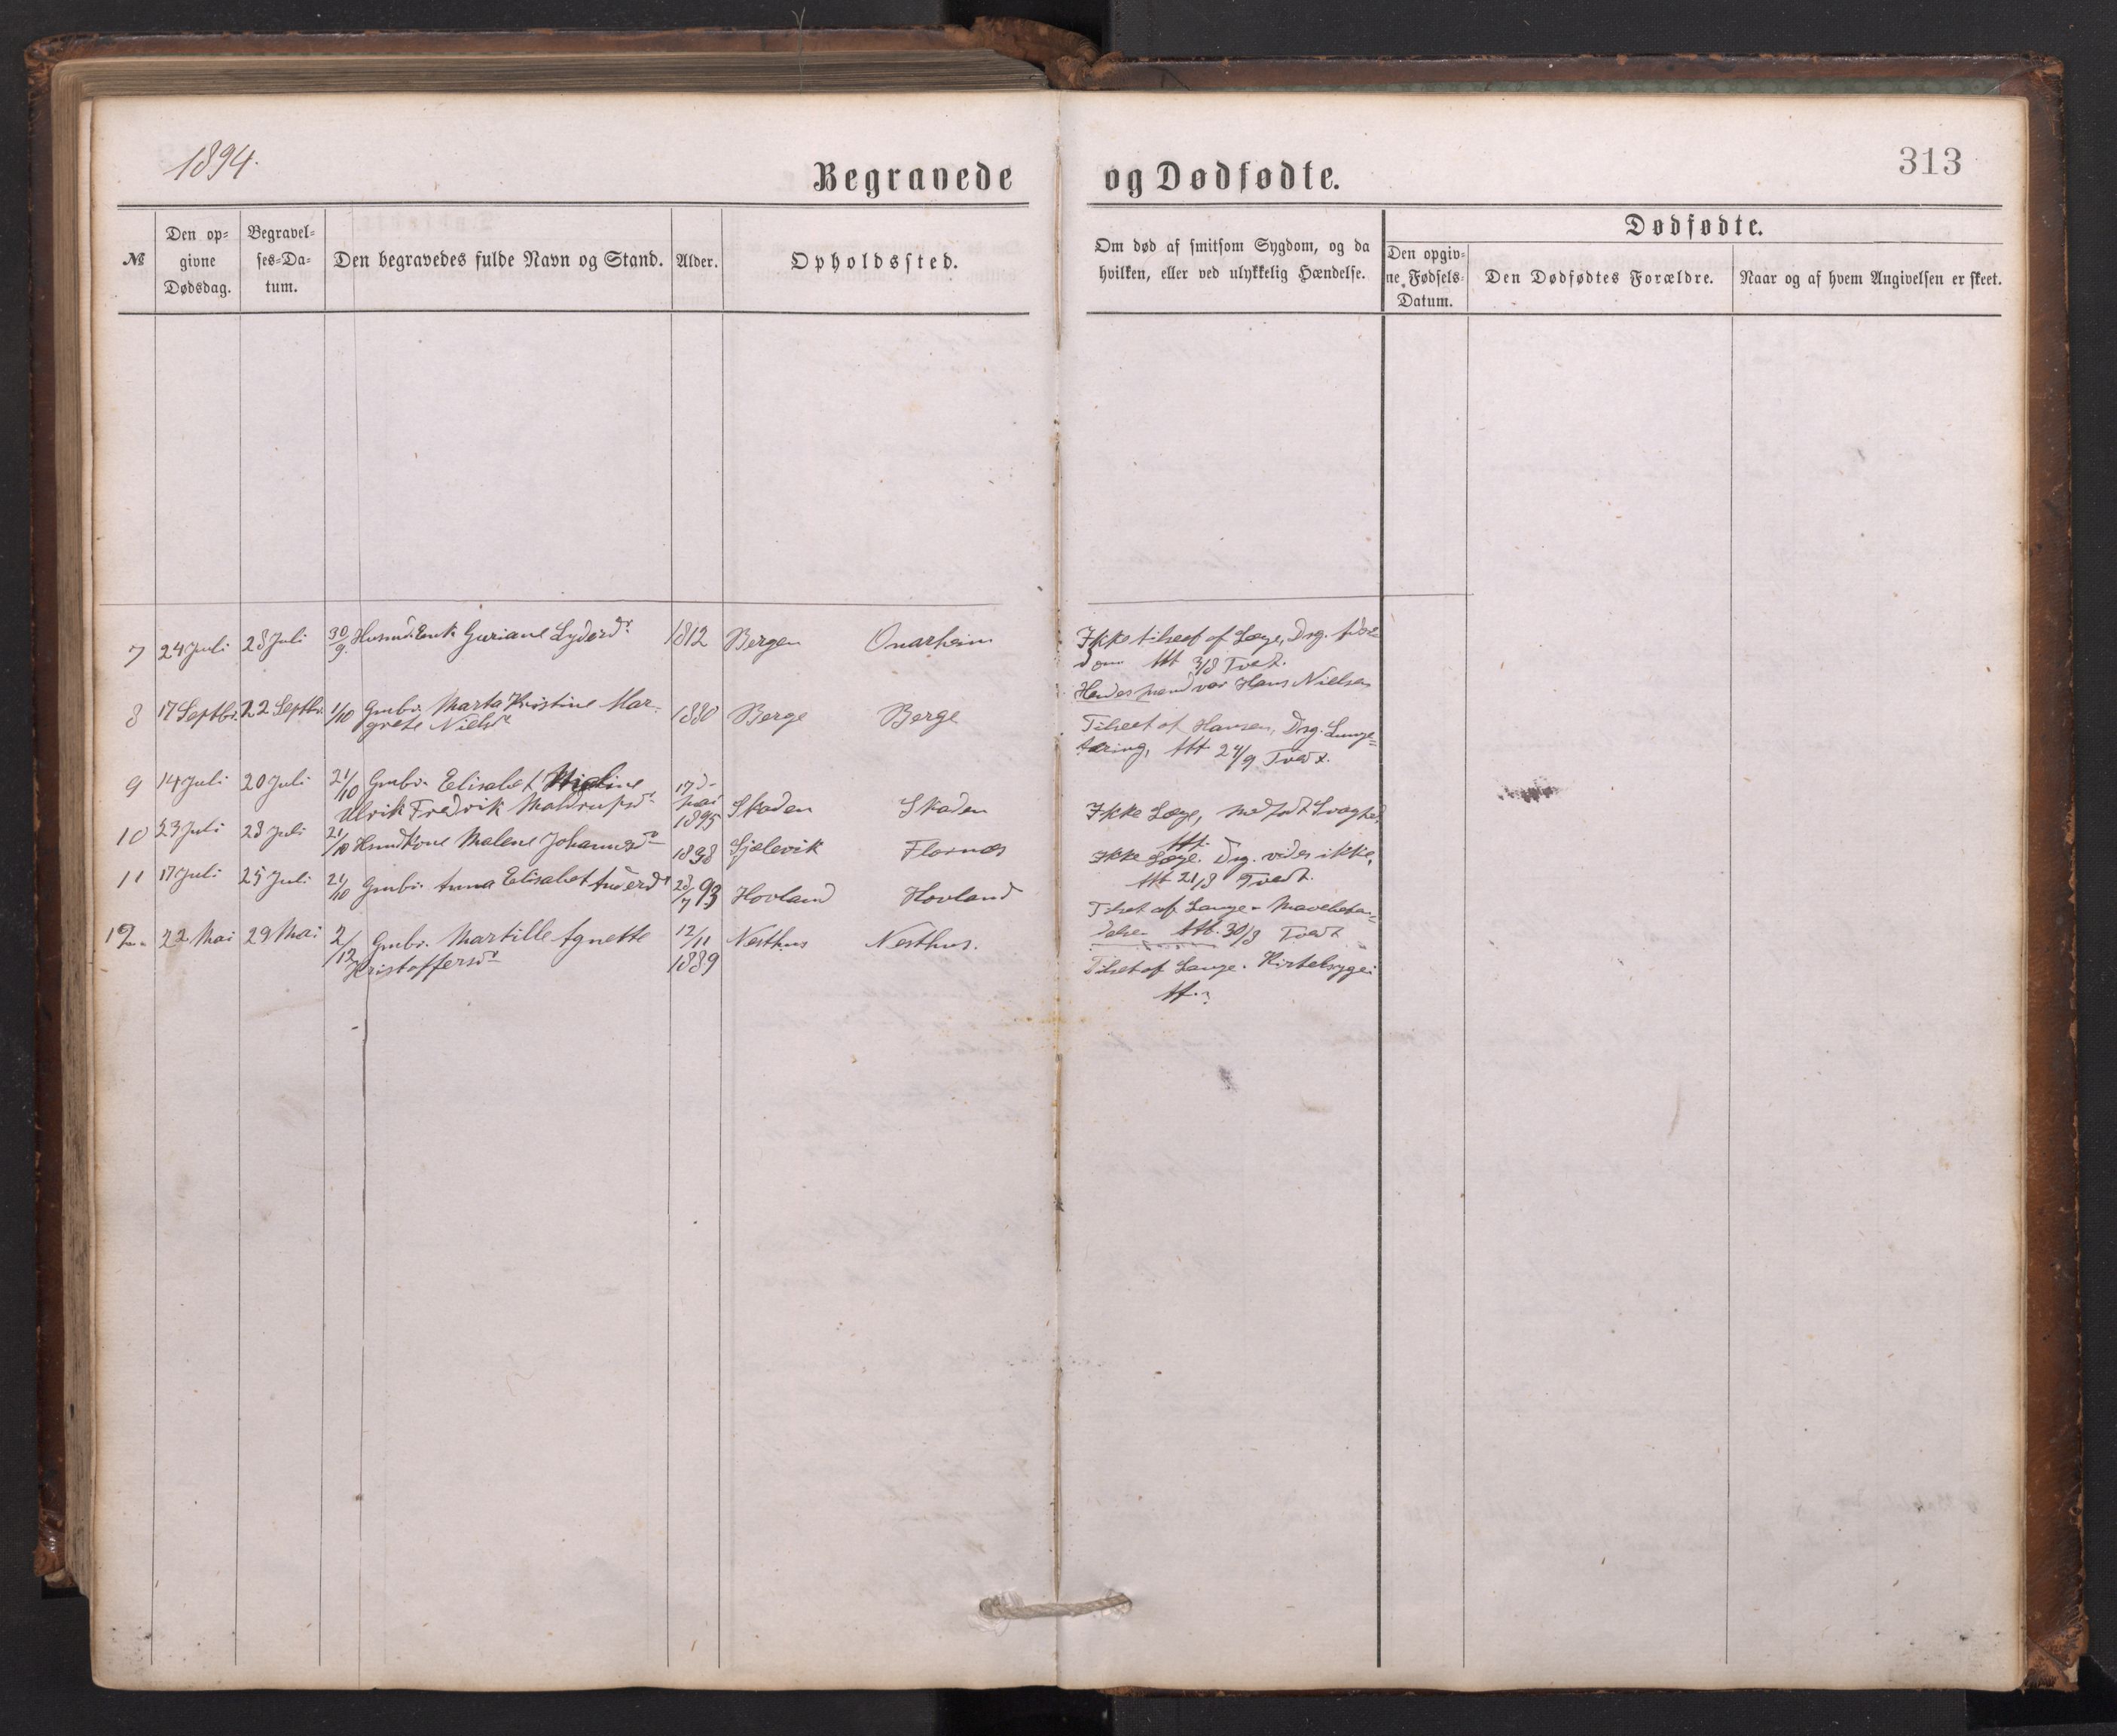 1894.
313
Begravede og Dødfødte.
№
Den op=
givne
Dødsdag.
Begravel=
ses=Da=
tum.
Den begravedes fulde Navn og Stand.
Alder.
Opholdssted.
Om død af smitsom Sygdom, og da
hvilken, eller ved ulykkelig Hændelse.
Dødfødte.
Den opgiv=
ne Fødsels=
Datum.
Den Dødfødtes Forældre.
Naar og af hvem Angivelsen er skeet.
7 24 Juli 28 Juli 30/9 Husmd. Enk. Guriane Lydersd. 1812 Bergen Onarheim
Ikke tilseet af Læge, Drg.
dom Att 3/8 Tvedt.
Hendes mand var Hans Nielsen
8 17 Septbr. 22 Septbr. 1/10 Gmbr. Marta Kristine Mar-
grete Nielsd. 1880 Berge Berge
Tilseet af Hansen, Drg. Lunge=
tæring, Att 24/9 Tvedt.
9 14 Juli 20 Juli 21/10 Gmbr. Elisabet
Ulrik Fredrik 17d-
mai
1895 Skaden Skaden
Ikke Læge, medfødt Svaghed
Att.
10 23 Juli 28 Juli 21/10 Malene Johannesd. 1838 Sjølevik Flornæs
Ikke Læge. Drg. vides ikke,
Att 21/8 Tvedt.
11 17 Juli 25 Juli 21/10 Gmbr. Anna Elisabet Andersd. 28/7 93 Hovland Hovland
Tilset af Lange. Mavebetæn=
delse Att. 30/8 Tvedt
12 22 Mai 29 Mai 2/12 Gmbr. Martille Agnette
Kristoffersd. 12/11
1889 Nesthus Nesthus.
Tilset af Lange. Kirtelsyge:
Att.